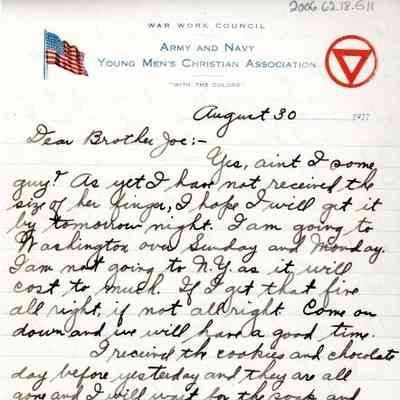 2006.62.18.G11
WAR WORK COUNCIL
ARMY AND NAVY
YOUNG MEN'S CHRISTIAN ASSOCIATION
"WITH THE COLORS"
August 30 1917
Dear Brother Joe:-
Yes, aint I some
guy? As yet I have not received the
size of her finger, I hope I will get it
by tomorrow night. I am going to
Washington over Sunday and Monday.
I am not going to N.Y. as it will
cost to much. If I get that five
all right, if not allright. Come on
down and we will have a good time.
I received the cookies and chocolate
day before yesterday and they are all
gone and I will wait for the socks and